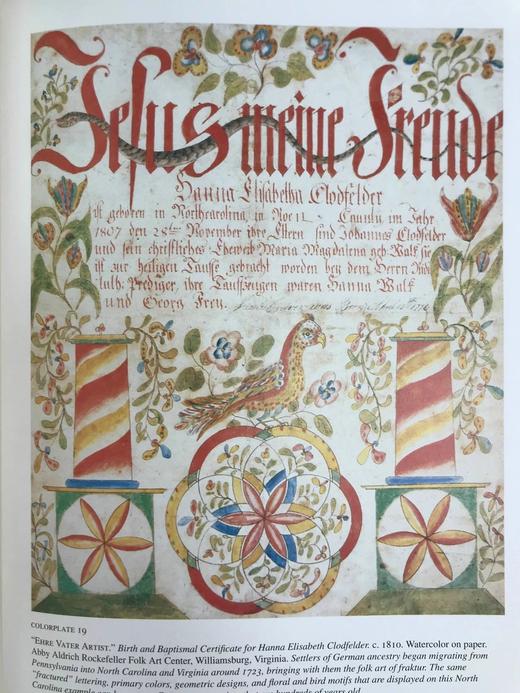 Jesus meine Freude
Hanna Elisabetha Clodfelder
ist geboren in Northcarolina in Ro Caunty im Jahr
1807 den 28ten November ihre Eltern sind Johannes Clodfelder
und sein christliches Eheweib Maria Magdalena geb Walk sie
ist zur heiligen Tauffe gebracht worden bey dem Herrn
luth. Prediger, ihre Tauffzeugen waren Hanna Walk
und Georg Frey.
COLORPLATE 19
"EHRE VATER ARTIST." Birth and Baptismal Certificate for Hanna Elisabeth Clodfelder. c. 1810. Watercolor on paper.
Abby Aldrich Rockefeller Folk Art Center, Williamsburg, Virginia. Settlers of German ancestry began migrating from
Pennsylvania into North Carolina and Virginia around 1723, bringing with them the folk art of fraktur. The same
"fractured" lettering, primary colors, geometric designs, and floral and bird motifs that are displayed on this North
Carolina example hundreds of years old